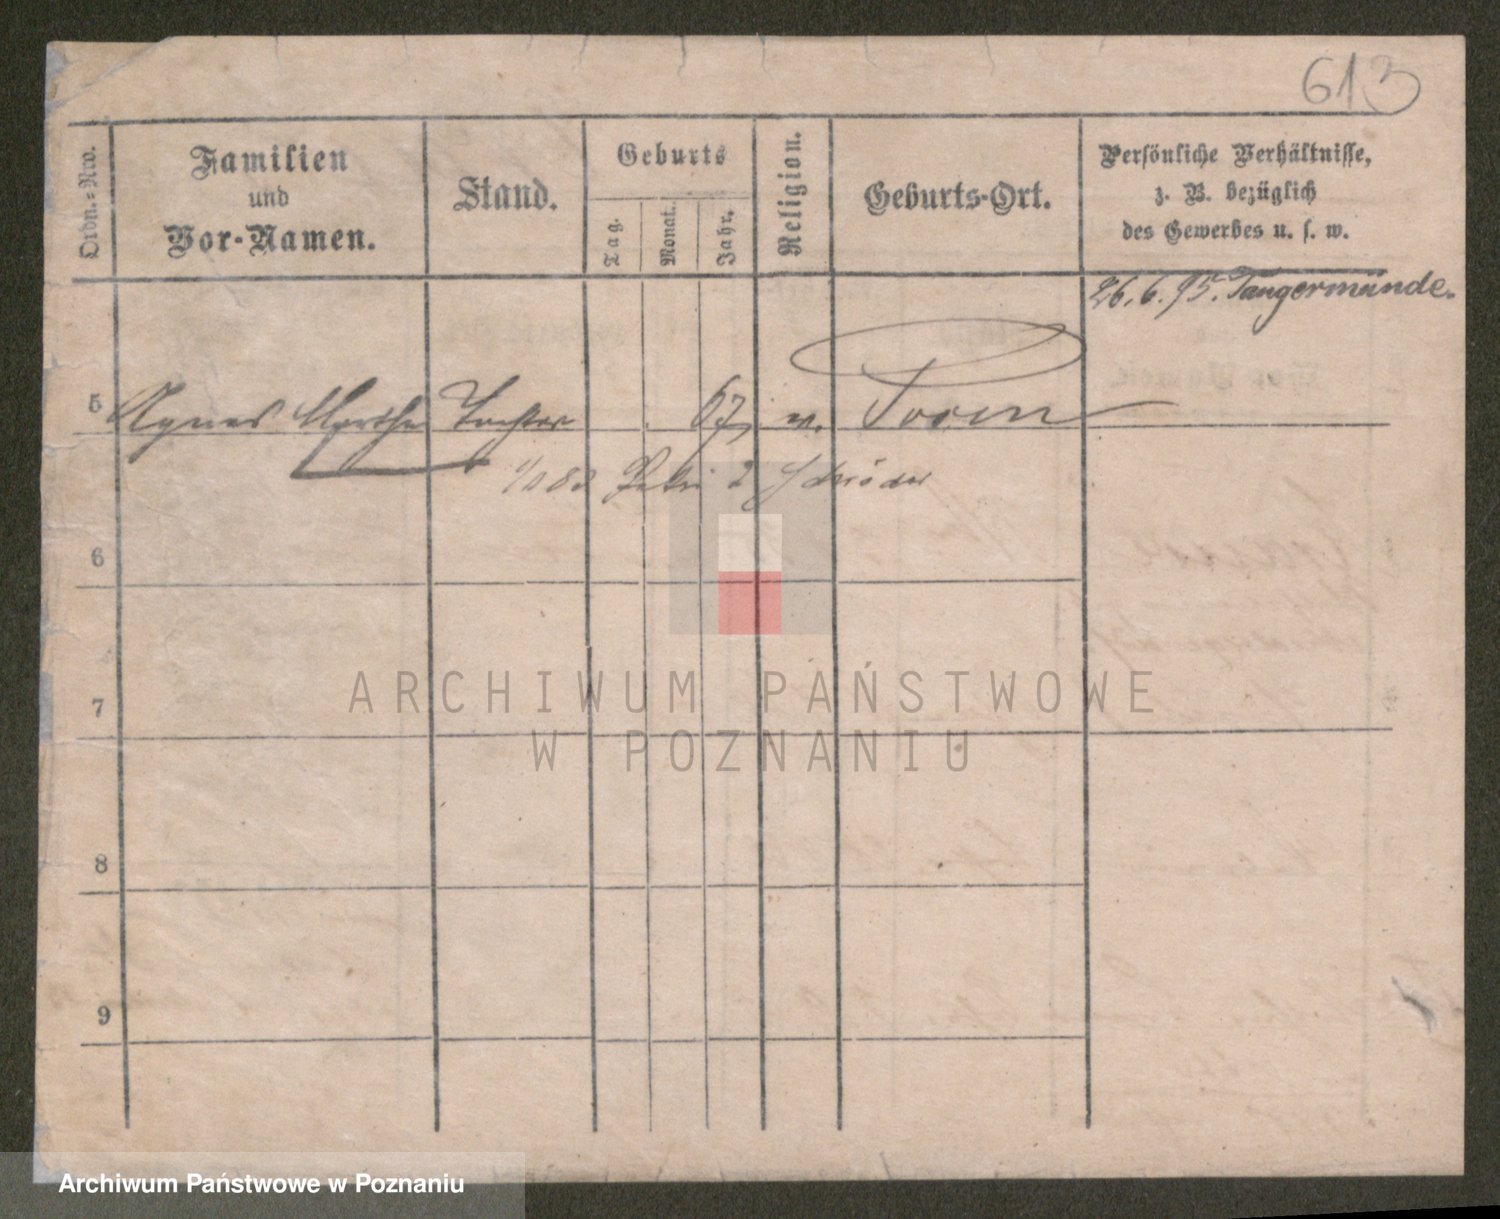 613
Ordn.=Nro.
Familien
und
Vor-Namen.
Stand.
Geburts
Tag.
Monat.
Jahr.
Religion.
Geburts-Ort.
Persönliche Verhältnisse,
z. B. bezüglich
des Gewerbes u. s. w.
26.6.95. Tangermünde.
5 Agnes Martha Tochter 67, Posen
Petri 2 Schröder
6
7
8
9
ARCHIWUM PAŃSTWOWE
W POZNANIU
Archiwum Państwowe w Poznaniu